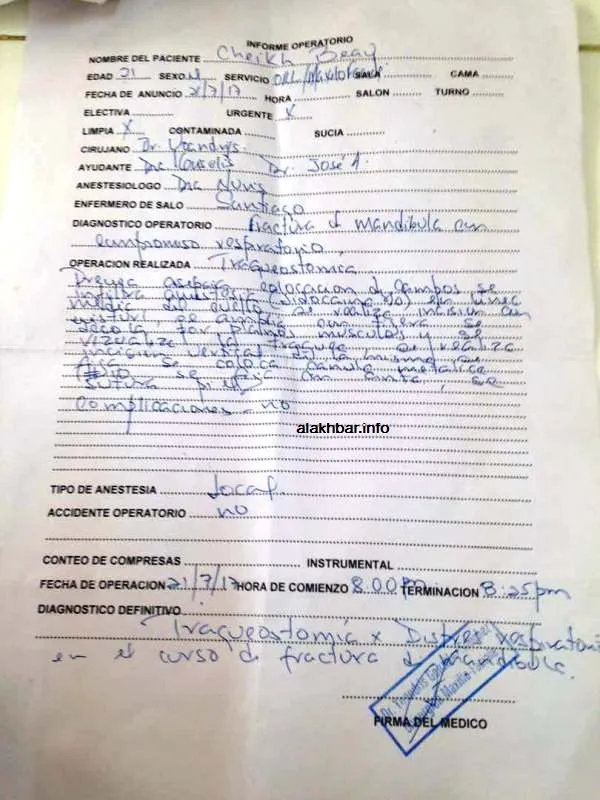 INFORME OPERATORIO
NOMBRE DEL PACIENTE Cheikh Beay
EDAD 21 SEXO M SERVICIO ORL/Maxilofacial SALA CAMA
FECHA DE ANUNCIO 21/7/17 HORA SALON TURNO
ELECTIVA URGENTE X
LIMPIA X CONTAMINADA SUCIA
CIRUJANO Dr.
AYUDANTE Dra Dr. José A.
ANESTESIOLOGO Dra
ENFERMERO DE SALO Santiago
DIAGNOSTICO OPERATORIO Fractura d mandibula con
compromiso respiratorio
OPERACION REALIZADA Traqueostomia
Previa asepsia, colocacion d campos se
en linea
media d cuello se realiza incision con
bisturi, se amplia con tijera se
por planos musculos y se
visualiza la traquea se realiza
incision vertical de la misma
se coloca canula metalica
se fija con cinta, se
sutura piel
Complicaciones - no
alakhbar.info
TIPO DE ANESTESIA Local
ACCIDENTE OPERATORIO no
CONTEO DE COMPRESAS INSTRUMENTAL
FECHA DE OPERACION 21/7/17 HORA DE COMIENZO 8:00pm TERMINACION 8:25pm
DIAGNOSTICO DEFINITIVO
Traqueostomia x Distres respiratorio
en el curso de fractura d mandibula.
FIRMA DEL MEDICO